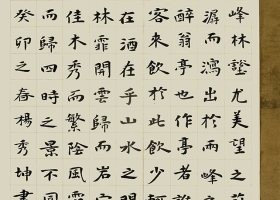 峰林壑尤美望之蔚
潺而瀉出於兩峰
醉翁亭也作亭者誰
客來飲於此飲少輒
在酒在乎山水之間
林霏開雲歸而岩穴
佳木秀而繁陰風霜
而歸四時之景不同
癸卯之春楊秀坤書